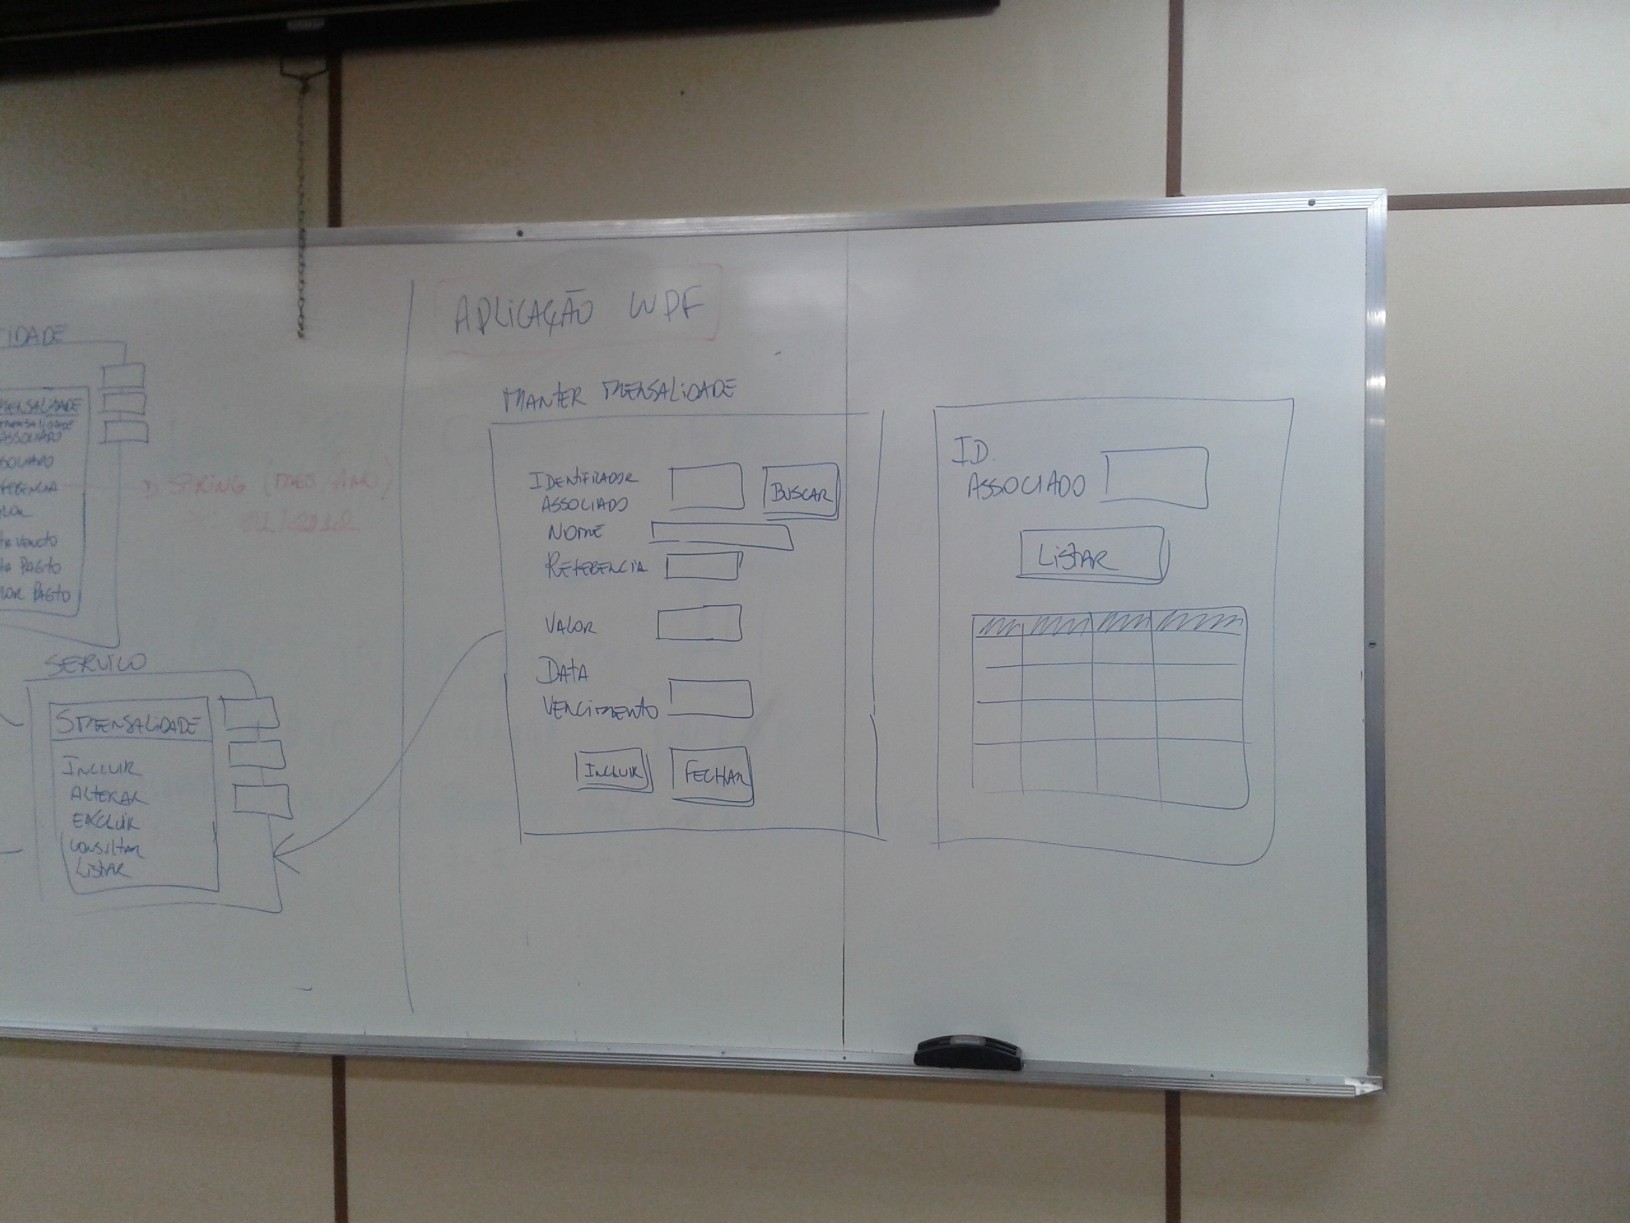 IDADE
MENSALIDADE
MENSALIDADE
ASSOCIADO
SOCIADO
FERENCIA
LOR
TA VENCTO
TA PAGTO
LOR PAGTO
STRING (MES/ANO)
SERVICO
SMENSALIDADE
INCLUIR
ALTERAR
EXCLUIR
CONSULTAR
LISTAR
APLICAÇÃO WPF
MANTER MENSALIDADE
IDENTIFICADOR
ASSOCIADO
BUSCAR
NOME
REFERENCIA
VALOR
DATA
VENCIMENTO
INCLUIR
FECHAR
ID.
ASSOCIADO
LISTAR